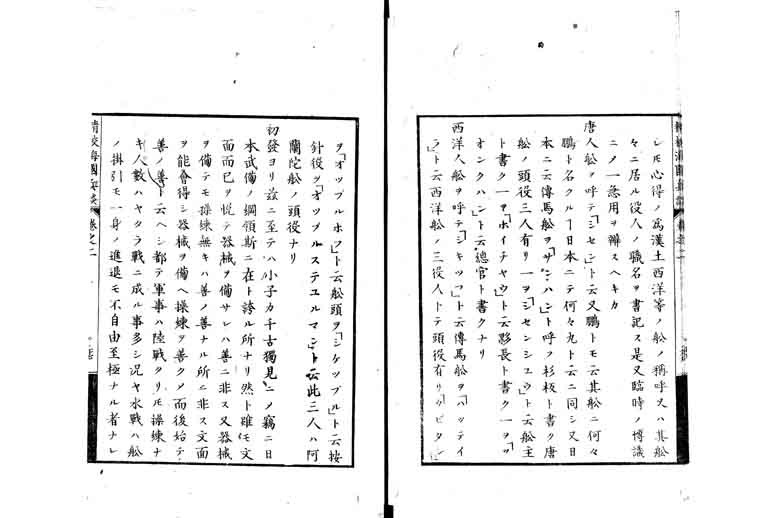 シモ心得ノ爲漢土西洋等ノ舩ノ稱呼又ハ其舩
々ニ居ル役人ノ職名ヲ書記ス是又臨時ノ博識
ニノ一急用ヲ辨スヘキカ
唐人舩ヲ呼テ「シセン」ト云又鵬トモ云其舩ニ何々
鵬ト名クルヿ日本ニテ何々丸ト云ニ同シ又日
本ニ云傳馬舩ヲ「サンハン」ト呼フ杉板ト書ク唐
舩ノ頭役三人有リ一ヲ「シセンシユウ」ト云舩主
ト書ク一ヲ「ホイチヤウ」ト云夥長ト書ク一ヲ「ツ
オンクハン」ト云總官ト書クナリ
西洋人舩ヲ呼テ「シキツフ」ト云傳馬舩ヲ「バツテイ
ラ」ト云西洋舩ノ三役人トテ頭役有リ「カピタン」
精校海國兵談 卷之一
ヲ「オツプルホフ」ト云舩頭ヲ「シケツブル」ト云按
針役ヲ「オツプルステユルマン」ト云此三人ハ阿
蘭陀舩ノ頭役ナリ
初發ヨリ玆ニ至テハ小子カ千古獨見ニノ竊ニ日
本武備ノ綱領斯ニ在ト誇ル所ナリ然ト雖モ文
面而已ヲ悦テ器械ヲ備サレハ善ニ非ス又器械
ヲ備テモ操練無キハ善ノ善ナル所ニ非ス文面
ヲ能會得シ器械ヲ備ヘ操練ヲ善クメ而後始テ
善ノ善ト云ヘシ都テ軍事ハ陸戰タリモ操練ナ
キ人數ハヤタラ戰ニ成ル事多シ况ヤ水戰ハ舩
ノ掛引モ一身ノ進退モ不自由至極ナル者ナレ